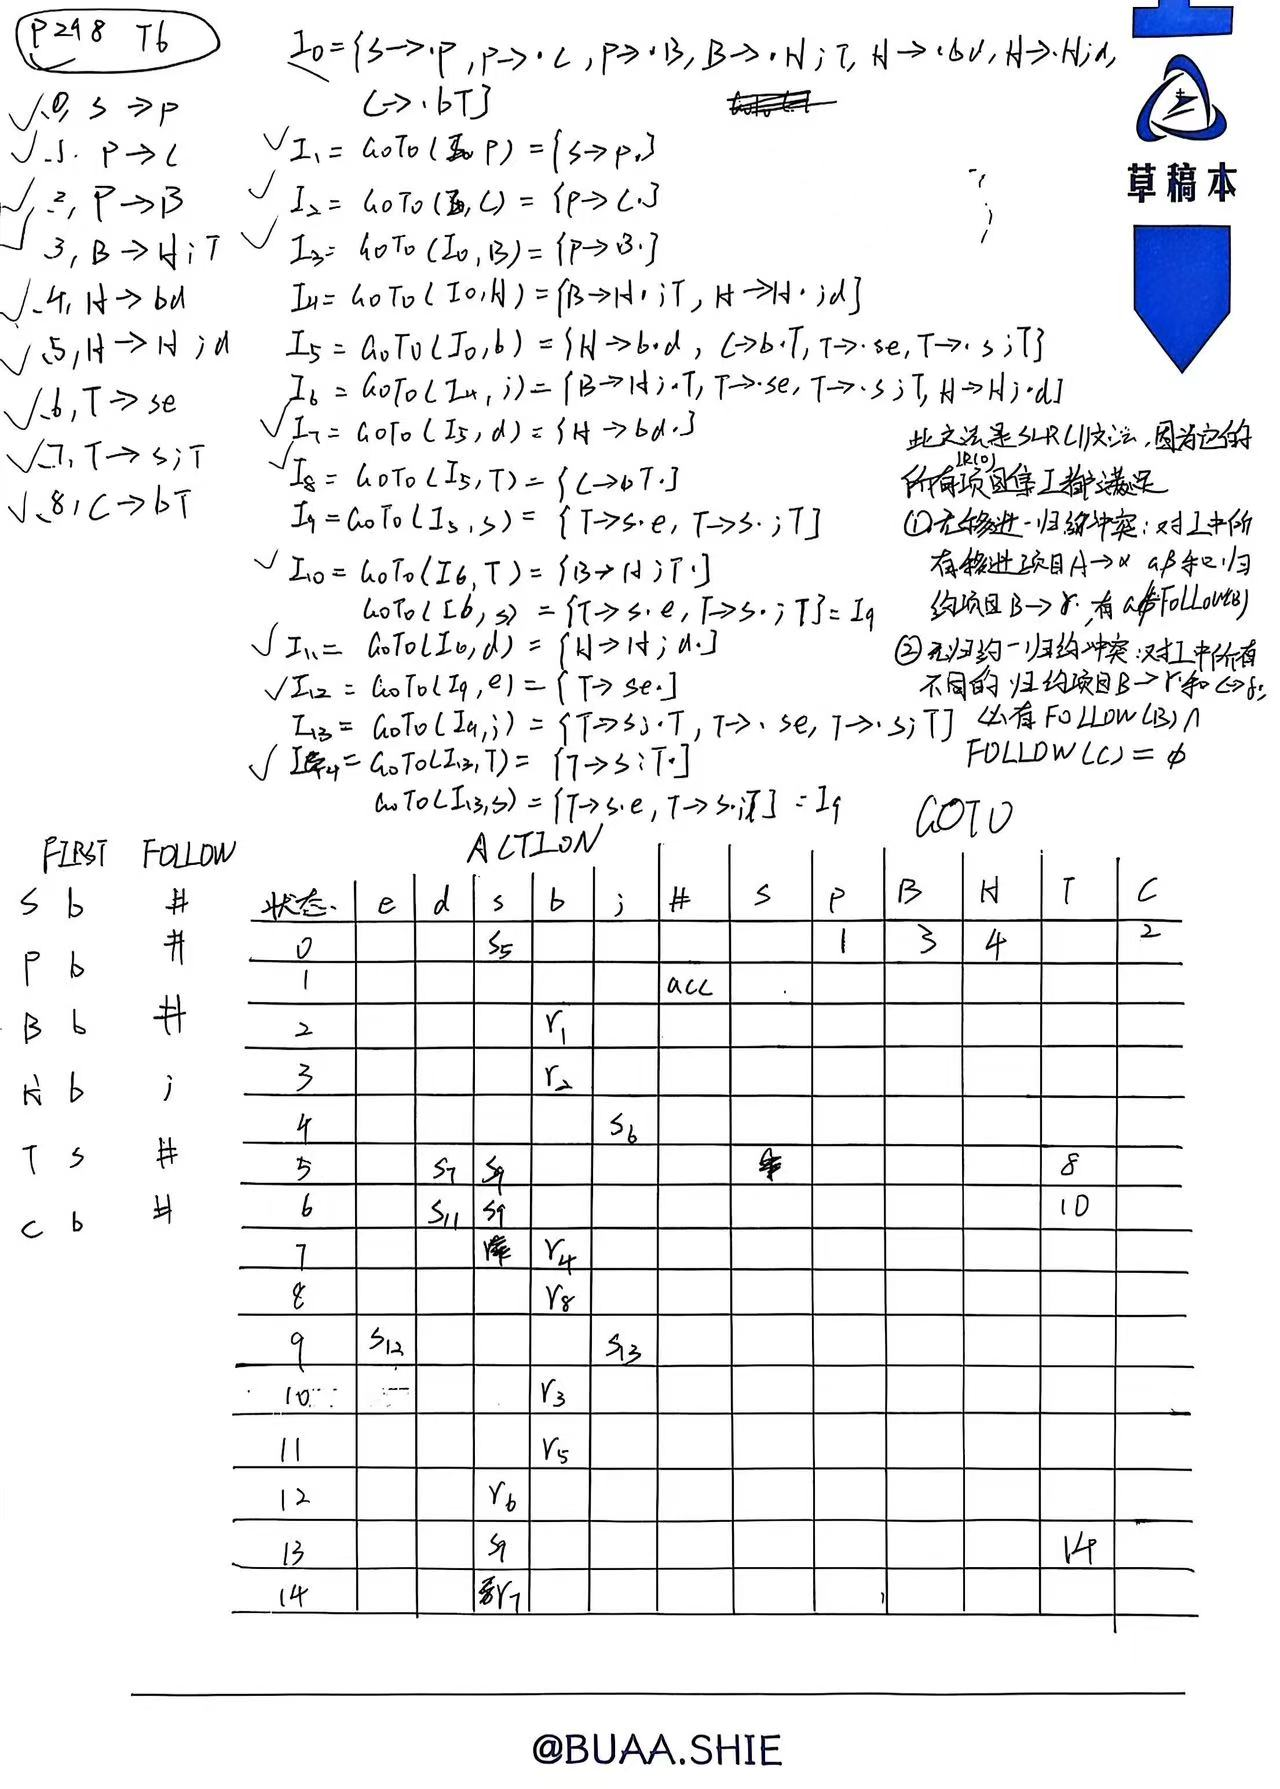 P248 T6
I0={S→·P, P→·C, P→·B, B→·H;T, H→·bd, H→·H;d,
C→·bT}
0, S→P
1. P→C
2, P→B
3, B→H;T
4, H→bd
5, H→H;d
6, T→se
7, T→s;T
8, C→bT
I1= GOTO(I0 P)={S→P.}
I2= GOTO(I0,C)={P→C.}
I3= GOTO(I0,B)={P→B.}
I4=GOTO(I0,H)={B→H·;T, H→H·;d}
I5=GOTO(I0,b)={H→b·d, C→b·T, T→·se, T→·s;T}
I6=GOTO(I4,;)={B→H;·T, T→·se, T→·s;T, H→H;·d}
I7=GOTO(I5,d)={H→bd.}
I8=GOTO(I5,T)={C→bT.}
I9=GOTO(I5,s)={T→s·e, T→s·;T}
I10=GOTO(I6,T)={B→H;T·}
GOTO(I6,s)={T→s·e, T→s·;T}=I9
I11= GOTO(I6,d)={H→H;d.}
I12=GOTO(I9,e)={T→se.}
I13=GOTO(I9,;)={T→s;·T, T→·se, T→·s;T}
I14=GOTO(I13,T)={T→s;T.}
GOTO(I13,s)={T→s·e, T→s·;T}=I9
草稿本
此文法是SLR(1)文法,因为它的
所有LR(0)项目集I都满足
①无移进-归约冲突:对I中所
有移进项目A→α aβ和归
约项目B→γ·,有a∉FOLLOW(B)
②无归约-归约冲突:对I中所有
不同的归约项目B→γ·和C→δ·,
必有FOLLOW(B)∩
FOLLOW(C)=φ
FIRST FOLLOW
S b #
P b #
B b #
H b ;
T s #
C b #
ACTION GOTO
状态. e d s b ; # S P B H T C
0 S5 1 3 4 2
1 acc
2 r1
3 r2
4 S6
5 S7 S9 8
6 S11 S9 10
7 r4
8 r8
9 S12 S13
10 r3
11 r5
12 r6
13 S9 14
14 r7
@BUAA.SHIE